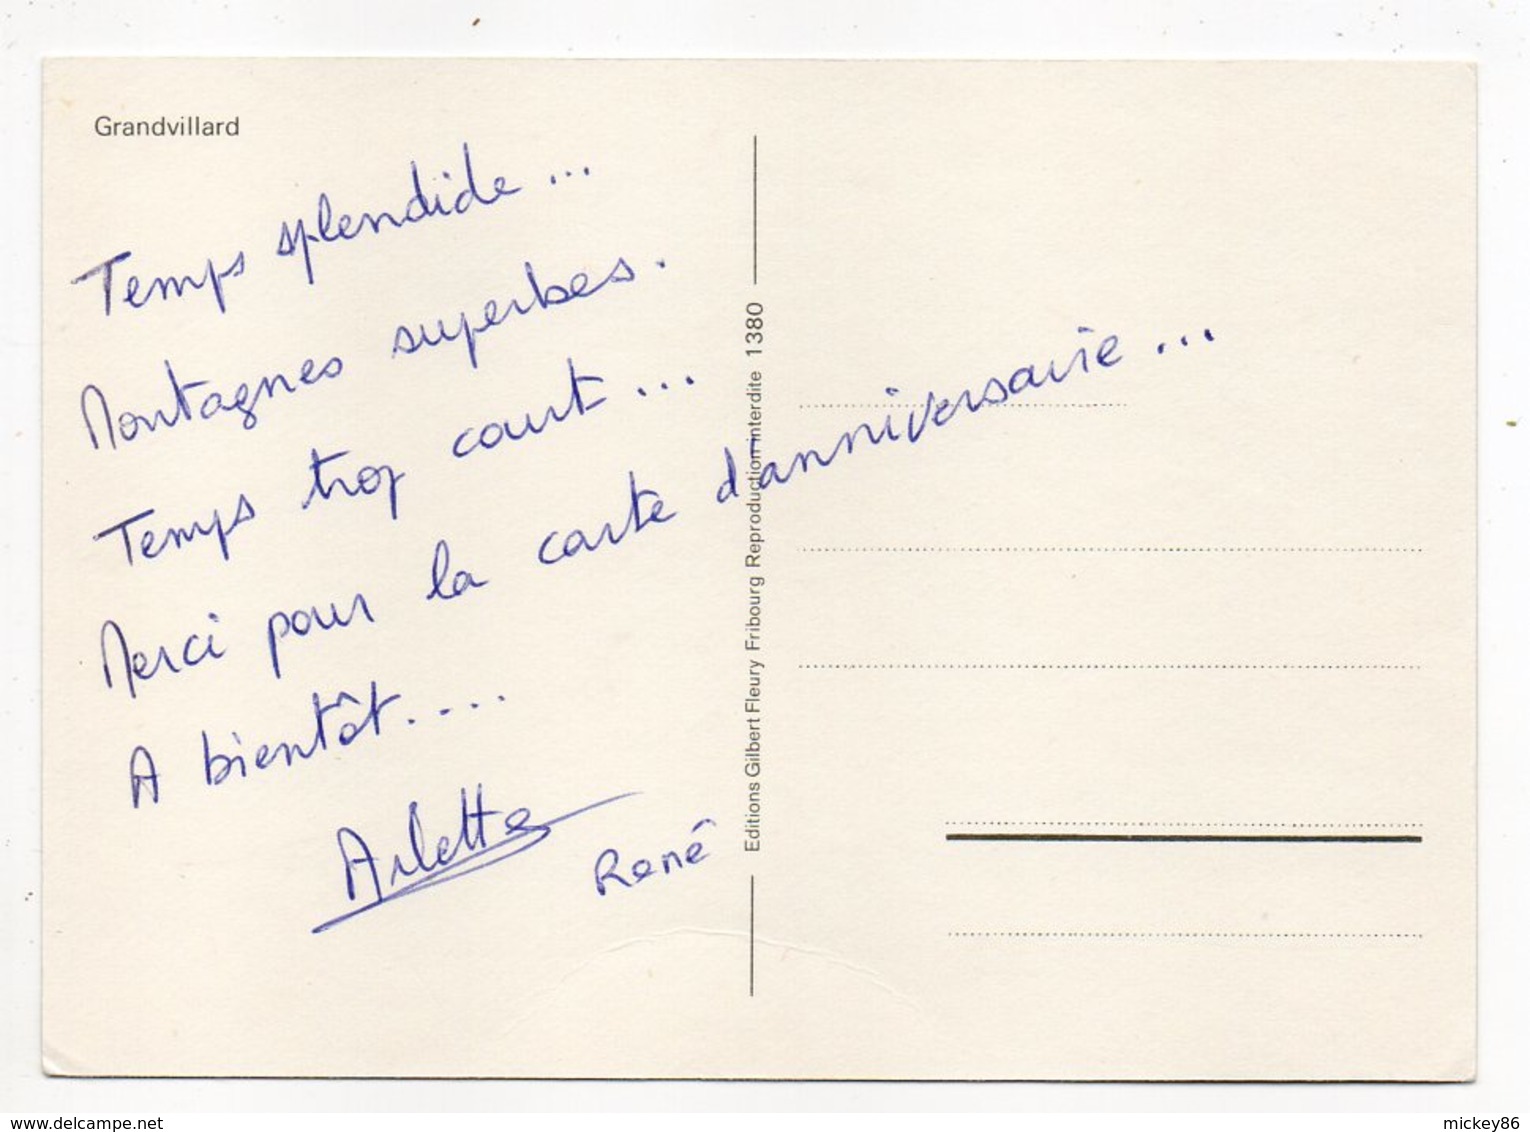 Grandvillard
Temps splendide ...
Montagnes superbes.
Temps trop court ...
Merci pour la carte d'anniversaire ...
A bientôt ....
Arlette
René
Editions Gilbert Fleury Fribourg Reproduction interdite 1380
www.delcampe.net
mickey86